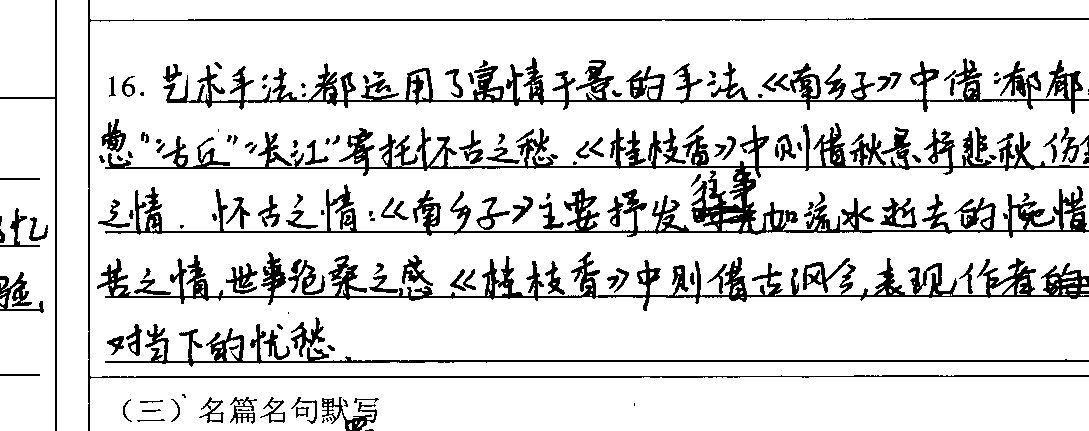 16. 艺术手法:都运用了寓情于景的手法.《南乡子》中借"郁郁
葱"“古丘”“长江”寄托怀古之愁.《桂枝香》中则借秋景抒悲秋,伤
之情. 怀古之情:《南乡子》主要抒发往事如流水逝去的惋惜
忆
苦之情,世事沧桑之感.《桂枝香》中则借古讽今,表现作者
验,
对当下的忧愁.
(三)名篇名句默写